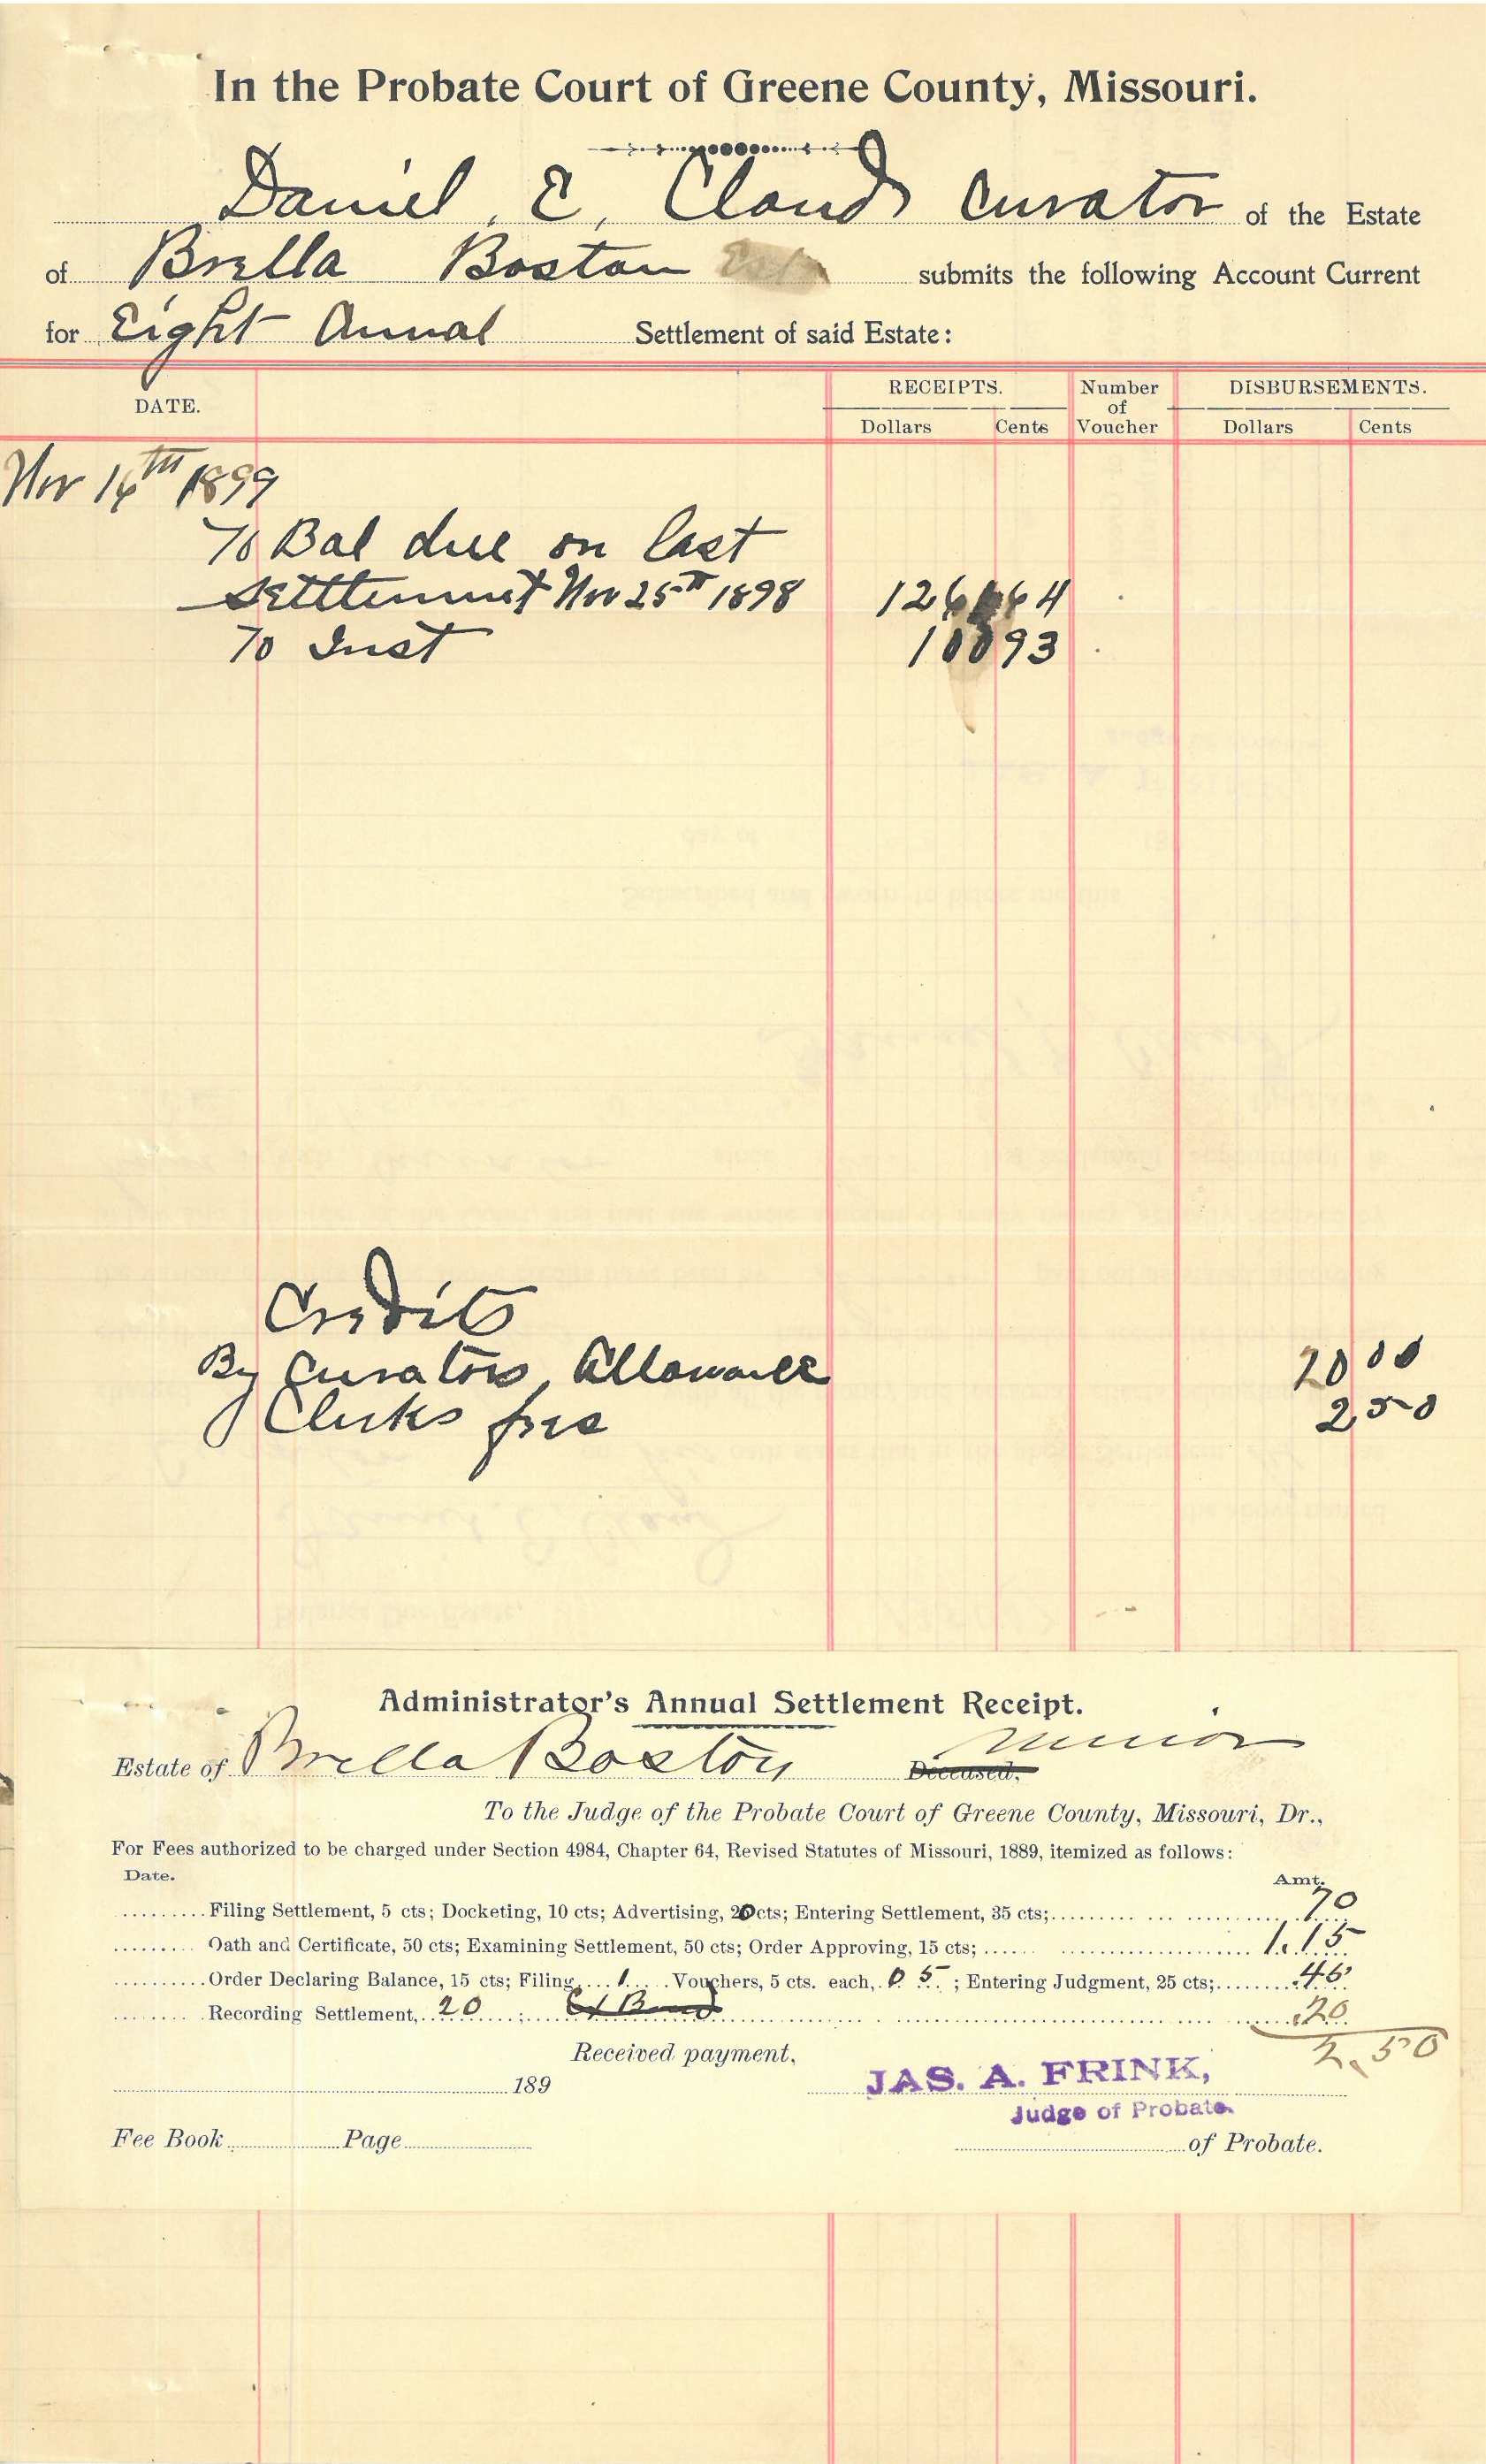 In the Probate Court of Greene County, Missouri.
Daniel, E, Cloud Curator of the Estate
of Brella Boston submits the following Account Current
for Eight Annual Settlement of said Estate:
DATE. RECEIPTS. Number of Voucher DISBURSEMENTS.
Dollars Cents Dollars Cents
Nov 14th 1899
To Bal due on last
settlement Nov 25th 1898 64
To Inst 93
Credits
By Curators, Allowance 20 00
" Clerks fees 2 50
Administrator's Annual Settlement Receipt.
Estate of Brella Boston Deceased, minor
To the Judge of the Probate Court of Greene County, Missouri, Dr.,
For Fees authorized to be charged under Section 4984, Chapter 64, Revised Statutes of Missouri, 1889, itemized as follows:
Date. Amt.
Filing Settlement, 5 cts; Docketing, 10 cts; Advertising, 20 cts; Entering Settlement, 35 cts; 70
Oath and Certificate, 50 cts; Examining Settlement, 50 cts; Order Approving, 15 cts; 1.15
Order Declaring Balance, 15 cts; Filing 1 Vouchers, 5 cts. each, 05 ; Entering Judgment, 25 cts; .45
Recording Settlement, 20 ; .20
2.50
Received payment,
189 JAS. A. FRINK,
Judge of Probate.
Fee Book Page of Probate.